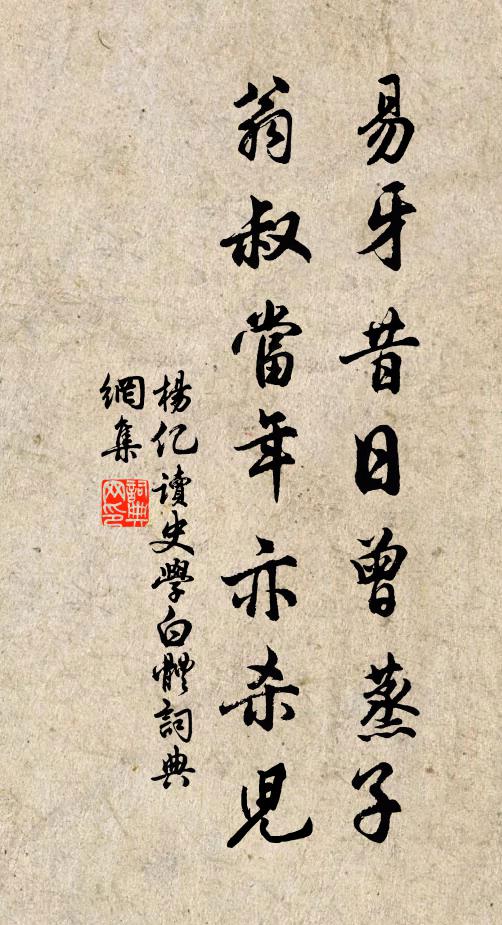 易牙昔日曾蒸子
翁叔當年亦杀兒
楊亿讀史學白體詞典
網集
詞典网印